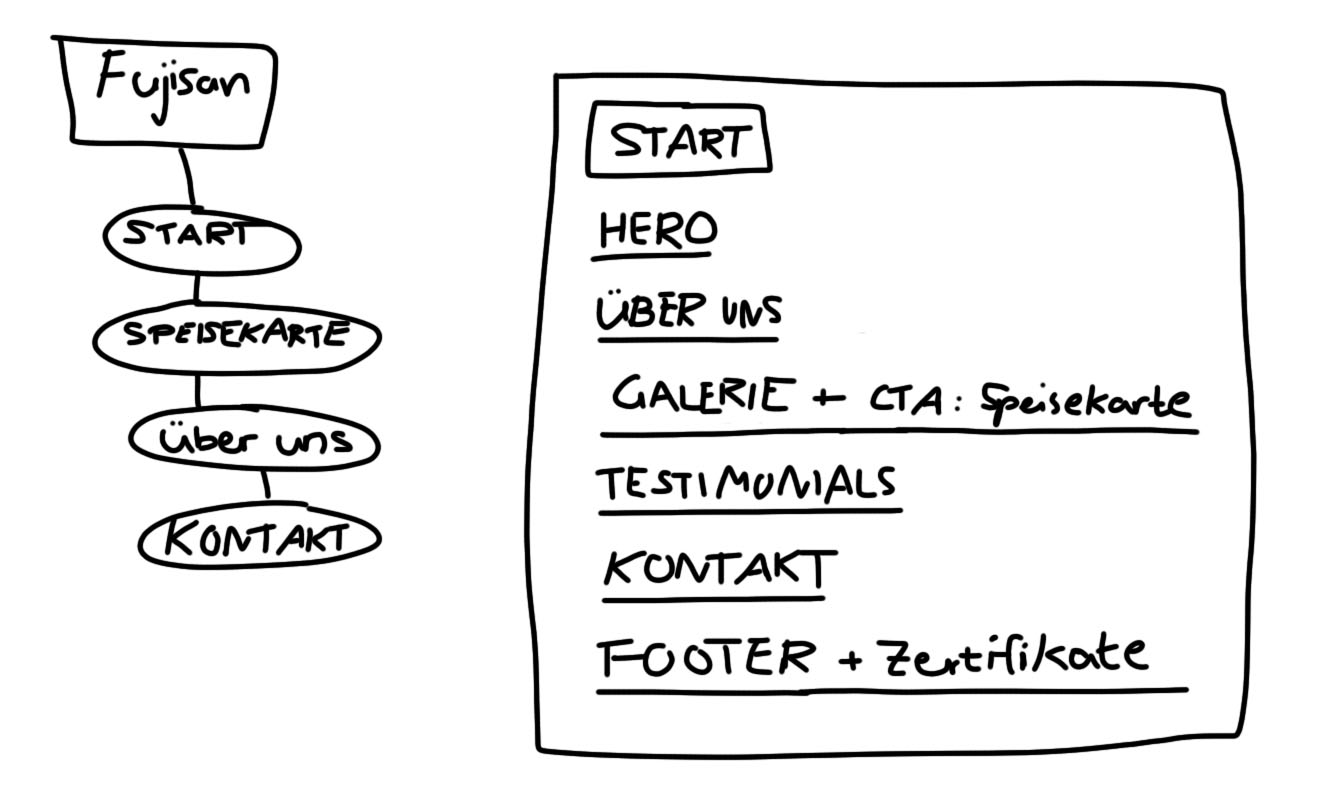 Fujisan
START
SPEISEKARTE
über uns
KONTAKT
START
HERO
ÜBER UNS
GALERIE + CTA: Speisekarte
TESTIMONIALS
KONTAKT
FOOTER + Zertifikate